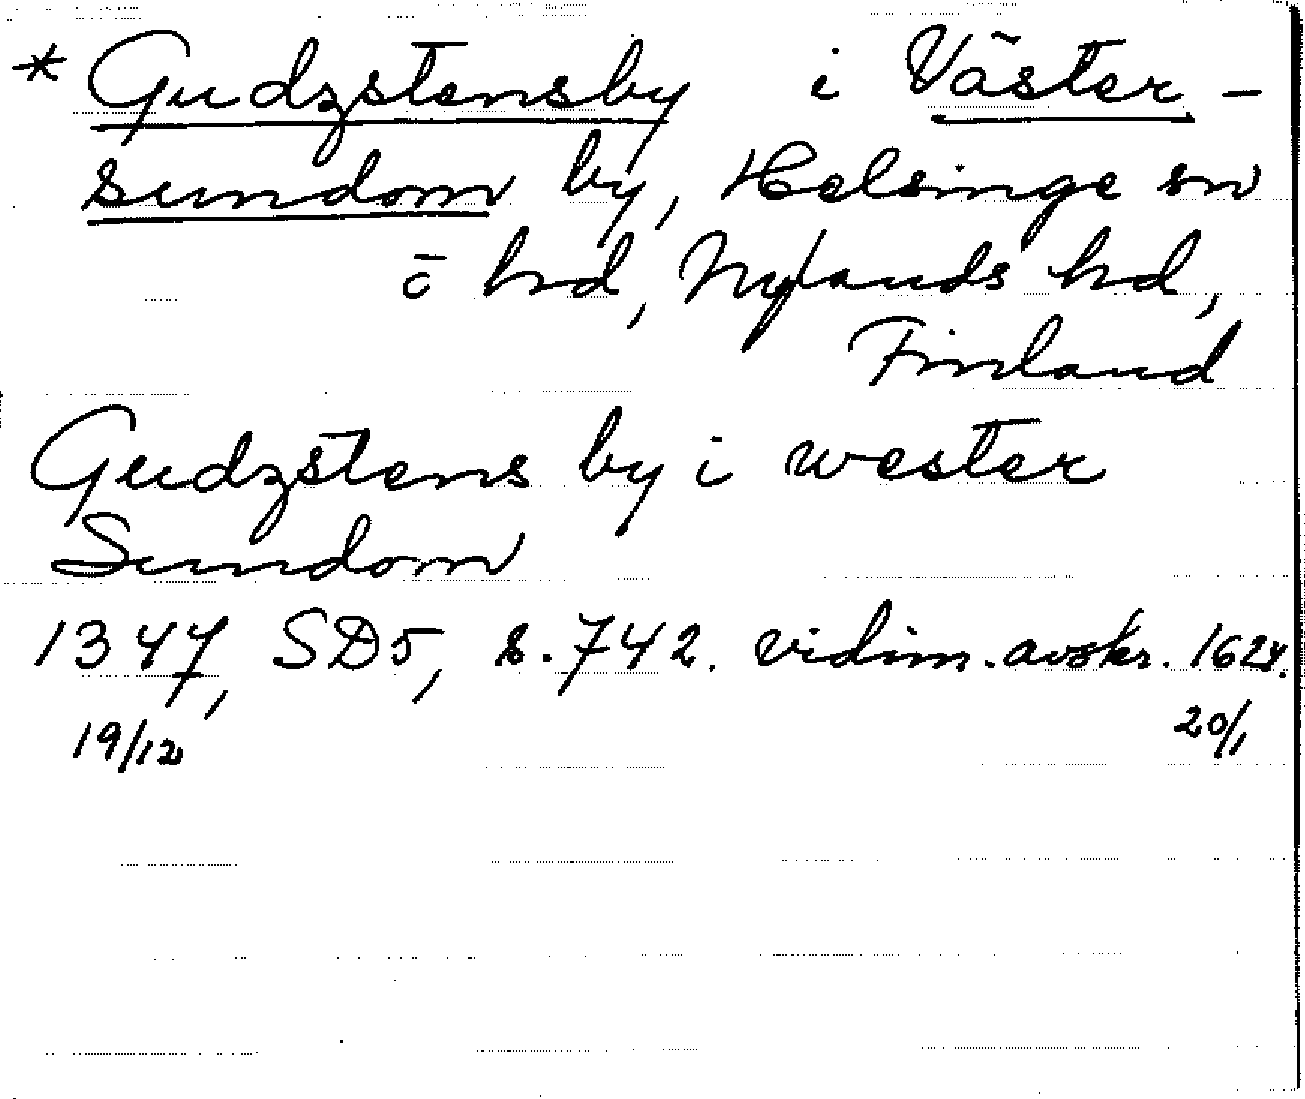 * Gudzstensby i Väster-
sundom by, Helsinge sn
o hd, Nylands hd,
Finland
Gudzstens by i wester
Sundom
1347, SD5, s. 742. vidim. avskr. 1624.
19/12 20/1